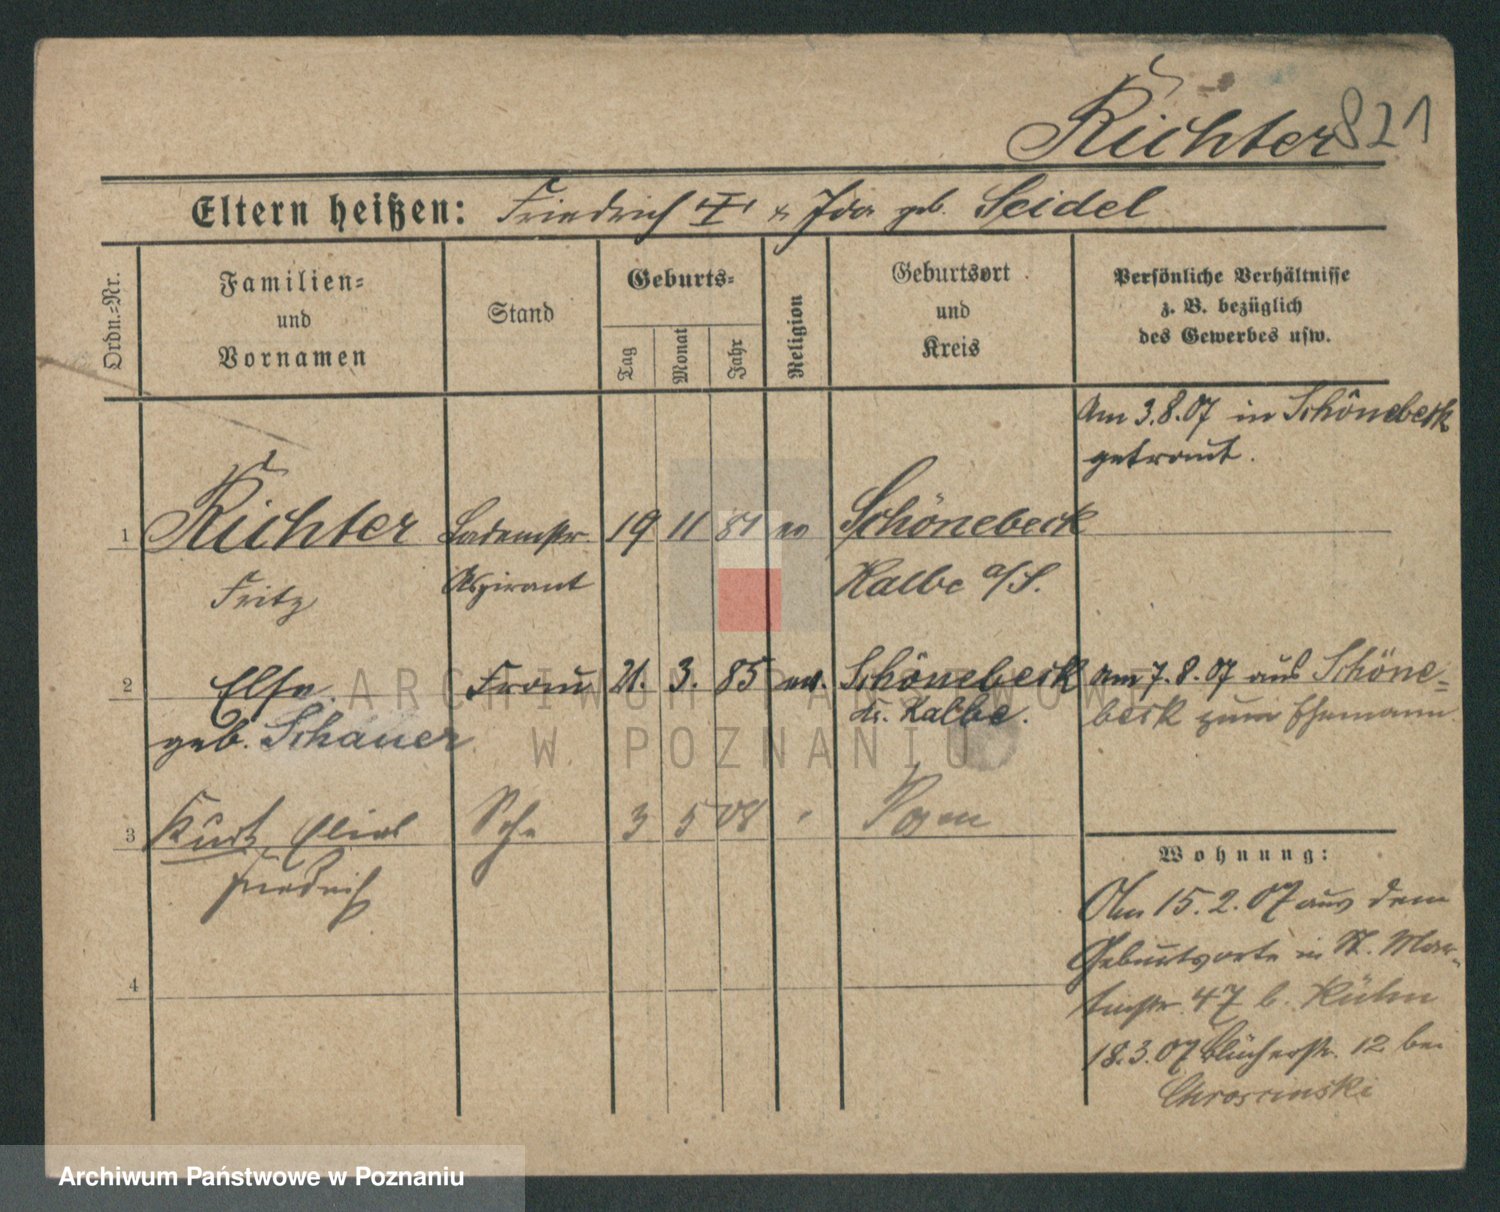 Richter 821
Eltern heißen: Friedrich & Ida geb. Seidel
Ordn.=Nr.
Familien=
und
Vornamen
Stand
Geburts=
Tag
Monat
Jahr
Religion
Geburtsort
und
Kreis
Persönliche Verhältnisse
z. B. bezüglich
des Gewerbes usw.
Am 3.8.07 in Schönebeck
getraut.
1 Richter Lademstr. 19 11 81 ev Schönebeck
Fritz Aspirant Kalbe a/S.
2 Else Frau 21. 3. 85 ev. Schönebeck Am 7.8.07 aus Schöne=
geb. Schauer Kr. Kalbe. beck zum Ehemann.
3 Kurt, 3 5 08 Posen
Friedrich
Wohnung:
Am 15.2.07 aus dem
Geburtsorte in St. Mar=
tinstr. 47 b. Kühn
18.3.07 Blücherstr. 12 bei
4
ARCHIWUM PAŃSTWOWE
W POZNANIU
Archiwum Państwowe w Poznaniu